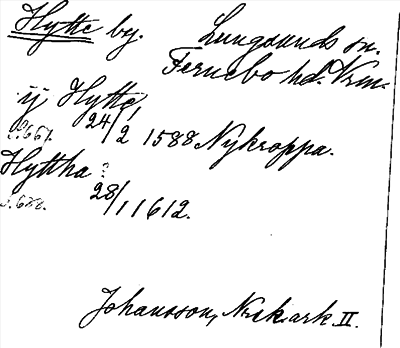 Hytte by. Lungsunds sn.
Fernebo hd. Vrm.
ij Hytte,
24/2 1588 Nykroppa.
Hyttha :
28/1 1612.
Johansson, Nrk. ark II.